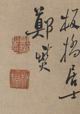 板橋居士
鄭燮